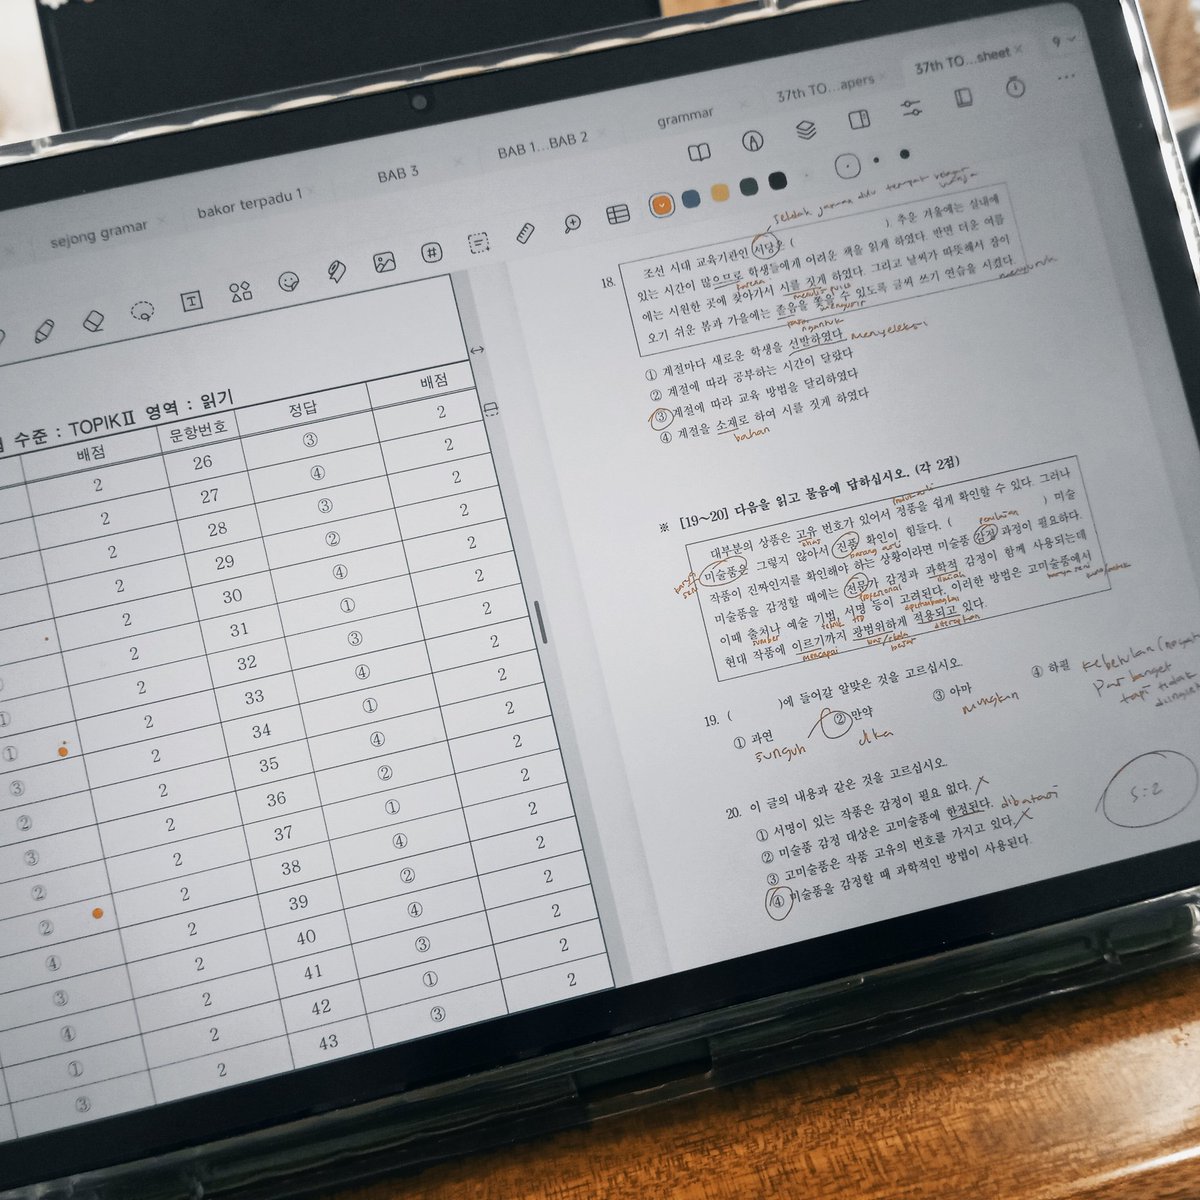 sejong gramar
bakor terpadu 1
BAB 3
BAB 1...BAB 2
grammar
37th TO...apers
37th TO...sheet
9
수준 : TOPIKⅡ 영역 : 읽기
배점 문항번호 정답 배점
2 26 ③ 2
2 27 ④ 2
2 28 ③ 2
2 29 ② 2
2 30 ④ 2
2 31 ① 2
2 32 ③ 2
① 2 33 ④ 2
① 2 34 ① 2
③ 2 35 ④ 2
② 2 36 ② 2
③ 2 37 ① 2
② 2 38 ④ 2
② 2 39 ② 2
④ 2 40 ④ 2
③ 2 41 ③ 2
④ 2 42 ① 2
① 2 43 ③
③
seldak jaman dulu tempat
18. 조선 시대 교육기관인 서당은 ( ) 추운 겨울에는 실내에
있는 시간이 많으므로 학생들에게 어려운 책을 읽게 하였다. 반면 더운 여름
karena
에는 시원한 곳에 찾아가서 시를 짓게 하였다. 그리고 날씨가 따뜻해서 잠이
menulis puisi
오기 쉬운 봄과 가을에는 졸음을 쫓을 수 있도록 글씨 쓰기 연습을 시켰다.
ngantuk
① 계절마다 새로운 학생을 선발하였다 menyeleksi
② 계절에 따라 공부하는 시간이 달랐다
③ 계절에 따라 교육 방법을 달리하였다
④ 계절을 소재로 하여 시를 짓게 하였다
bahan
※ [19~20] 다음을 읽고 물음에 답하십시오. (각 2점)
대부분의 상품은 고유 번호가 있어서 정품을 쉽게 확인할 수 있다. 그러나
미술품은 그렇지 않아서 진품 확인이 힘들다. ( ) 미술
barang asli
작품이 진짜인지를 확인해야 하는 상황이라면 미술품 감정 과정이 필요하다.
미술품을 감정할 때에는 전문가 감정과 과학적 감정이 함께 사용되는데
profesional
이때 출처나 예술 기법, 서명 등이 고려된다. 이러한 방법은 고미술품에서
sumber teknik ttd
현대 작품에 이르기까지 광범위하게 적용되고 있다.
mencapai diterapkan
besar
19. ( )에 들어갈 알맞은 것을 고르십시오.
① 과연 ② 만약 ③ 아마 ④ 하필
sunguh jika mungkin kebetulan
Pas banget
tapi tidak
20. 이 글의 내용과 같은 것을 고르십시오.
① 서명이 있는 작품은 감정이 필요 없다. X
② 미술품 감정 대상은 고미술품에 한정된다. dibatasi
③ 고미술품은 작품 고유의 번호를 가지고 있다. X
④ 미술품을 감정할 때 과학적인 방법이 사용된다.
S:2